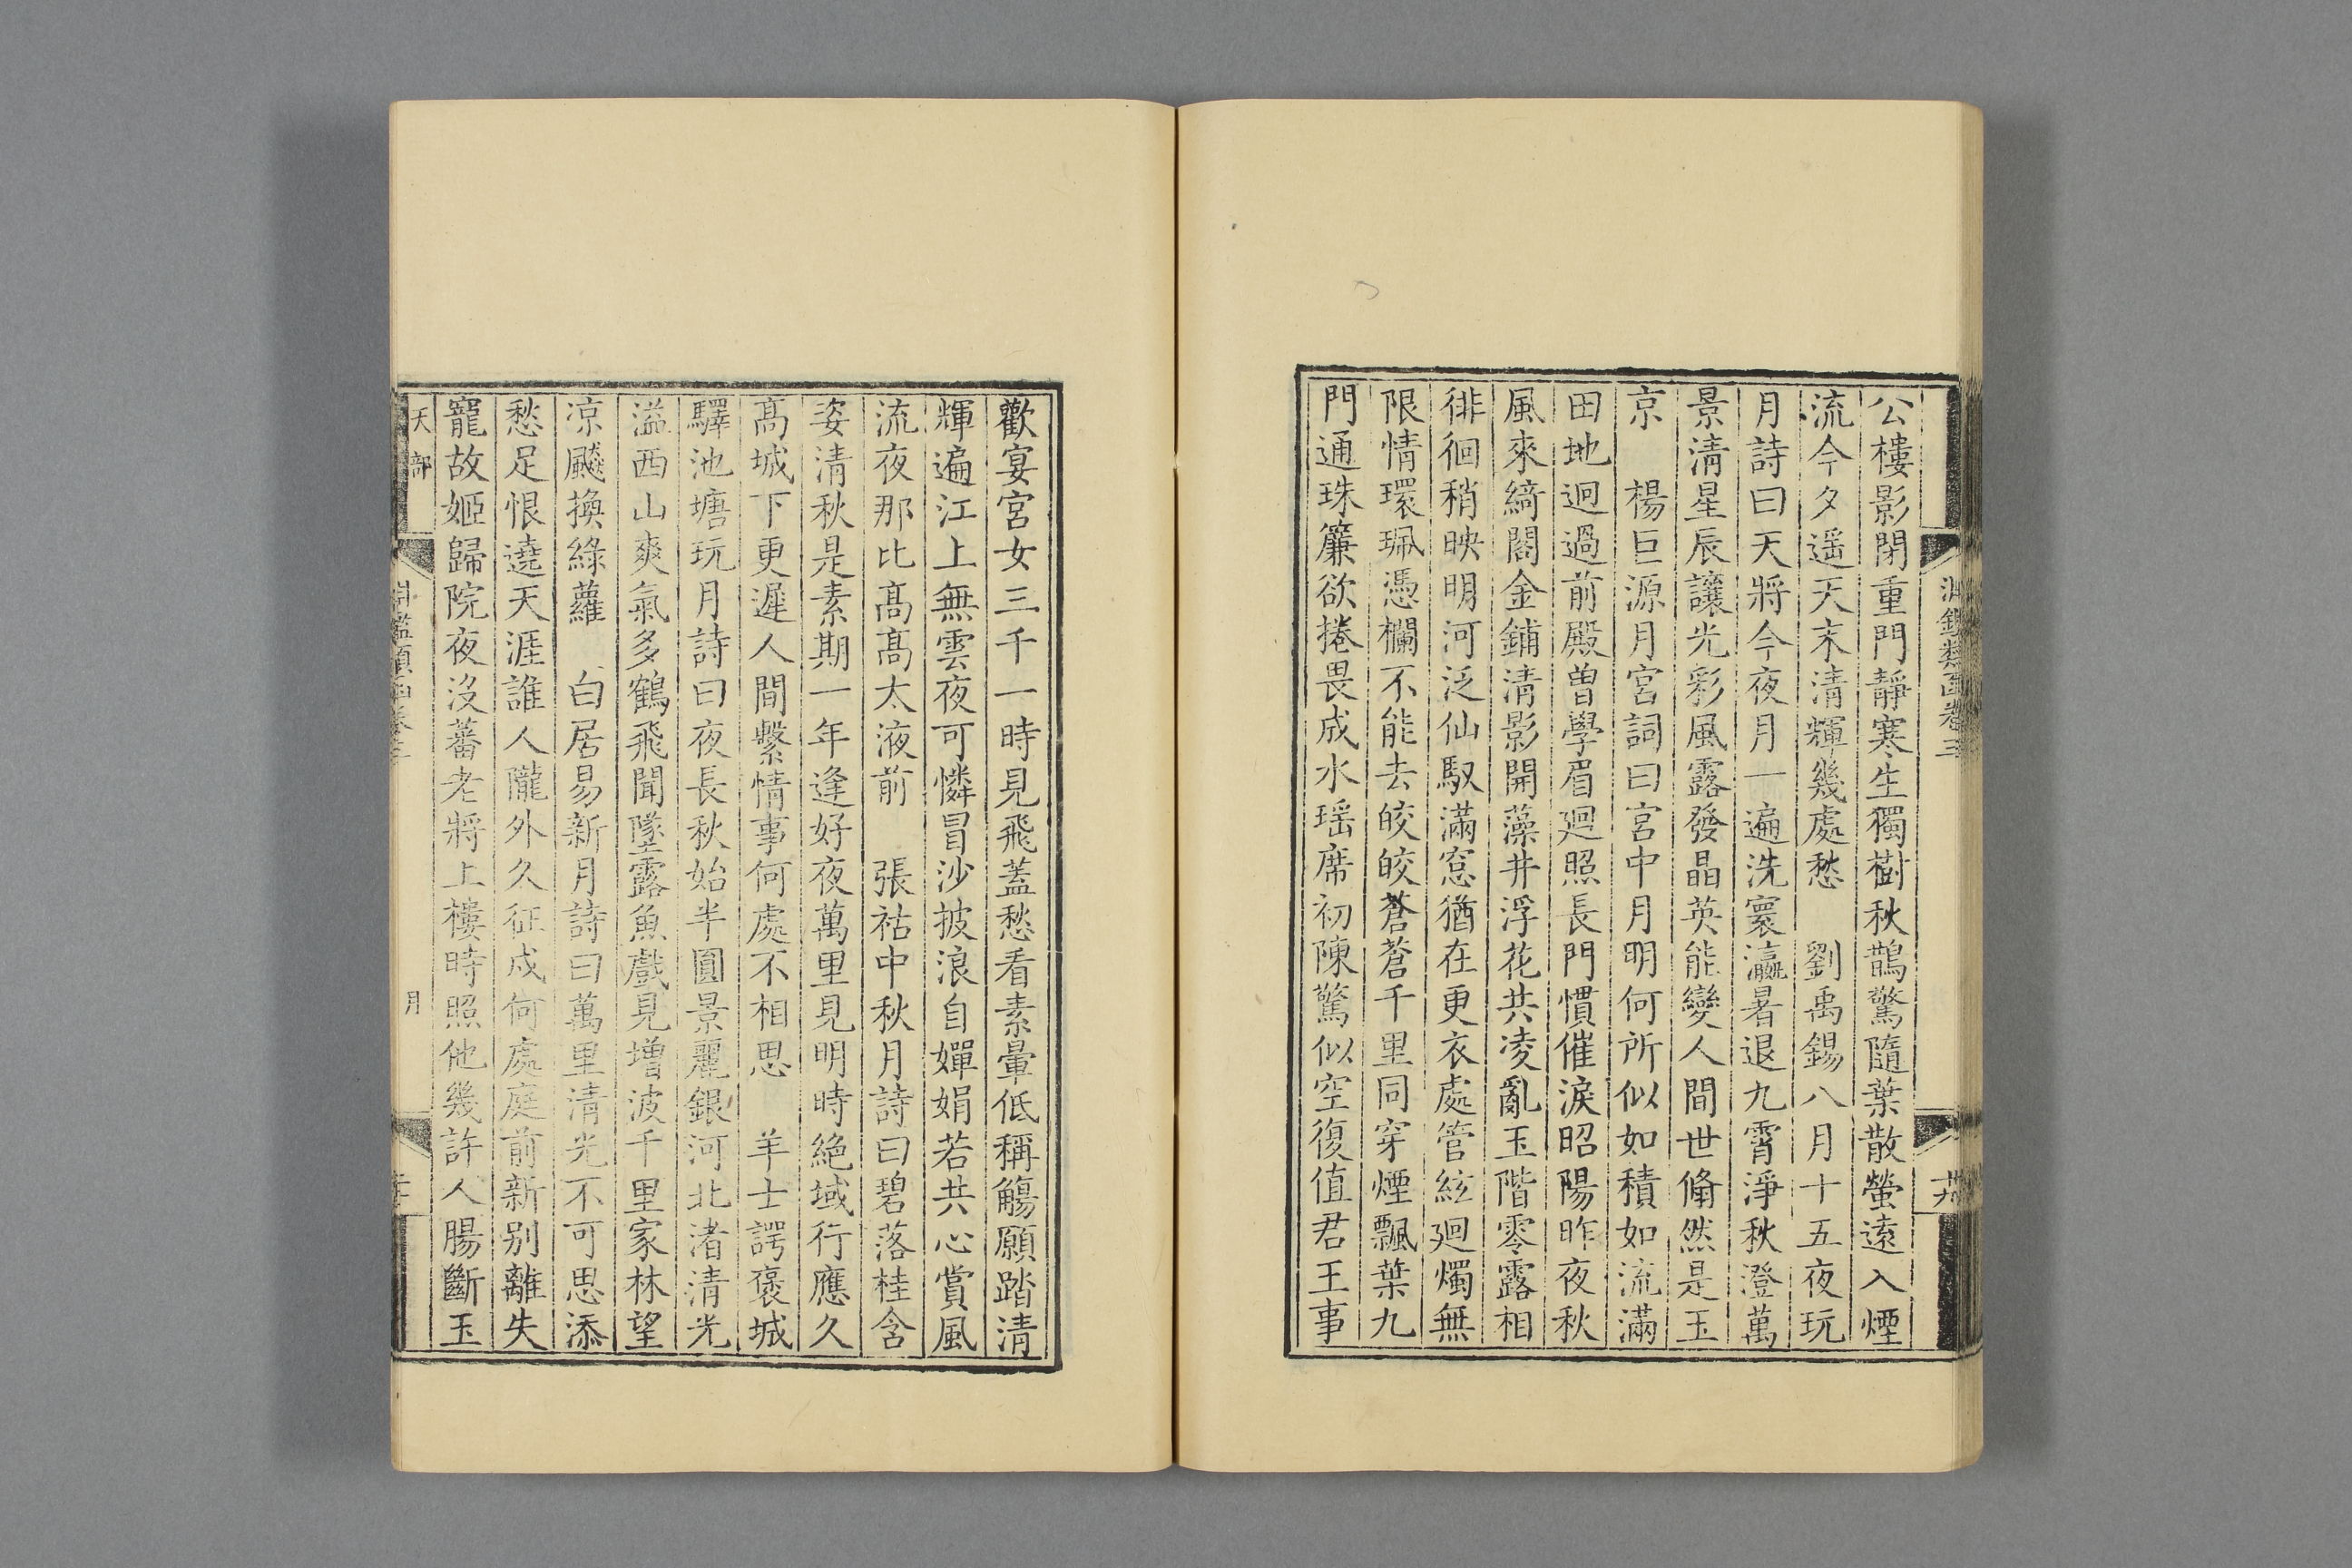 淵鑑類函卷三
十九
公樓影閉重門靜寒生獨樹秋鵲驚隨葉散螢遠入煙
流今夕遥天末清輝幾處愁　劉禹錫八月十五夜玩
月詩曰天將今夜月一遍洗寰瀛暑退九霄淨秋澄萬
景清星辰讓光彩風露發晶英能變人間世翛然是玉
京　楊巨源月宮詞曰宮中月明何所似如積如流滿
田地迥過前殿曽學眉廻照長門慣催淚昭陽昨夜秋
風來綺閣金鋪清影開藻井浮花共凌亂玉階零露相
徘徊稍映明河泛仙馭滿窓猶在更衣處管絃廻燭無
限情環珮憑欄不能去皎皎蒼蒼千里同穿煙飄葉九
門通珠簾欲捲畏成水瑶席初陳驚似空復值君王事
歡宴宮女三千一時見飛蓋愁看素暈低稱觴願踏清
輝遍江上無雲夜可憐冒沙披浪自嬋娟若共心賞風
流夜那比髙髙太液前　張祜中秋月詩曰碧落桂含
姿清秋是素期一年逢好夜萬里見明時絶域行應久
髙城下更遲人間繫情事何處不相思　羊士諤褒城
驛池塘玩月詩曰夜長秋始半圓景麗銀河北渚清光
溢西山爽氣多鶴飛聞墜露魚戲見增波千里家林望
凉飇換綠蘿　白居易新月詩曰萬里清光不可思添
愁足恨遶天涯誰人隴外久征戍何處庭前新别離失
寵故姬歸院夜沒蕃老將上樓時照他幾許人腸斷玉
天部
月